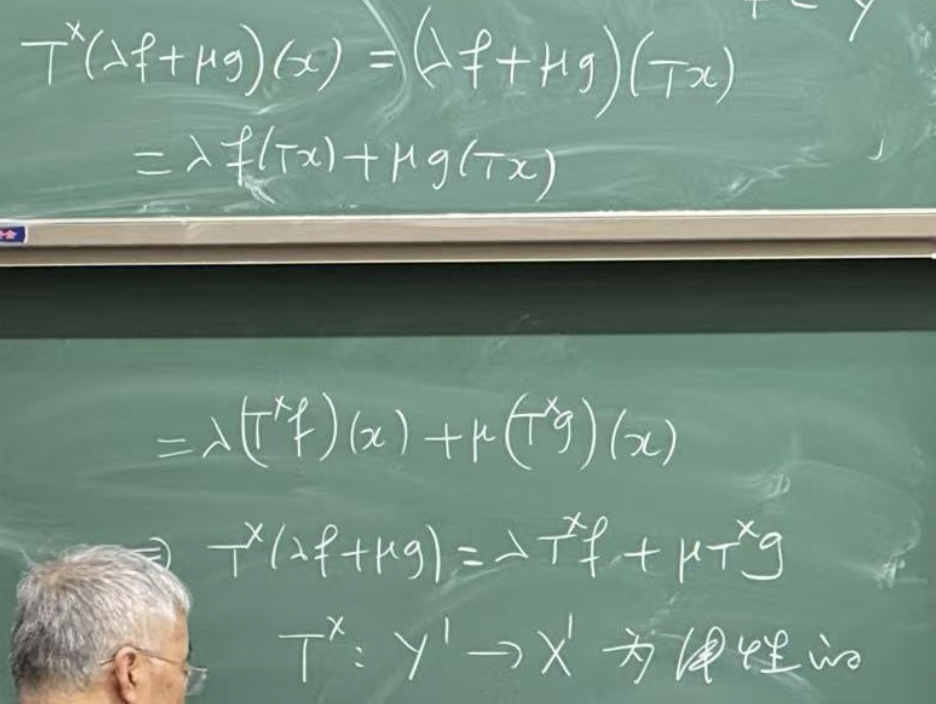 T^×(λf+μg)(x) = (λf+μg)(Tx)
= λf(Tx)+μg(Tx)
= λ(T^×f)(x)+μ(T^×g)(x)
⇒ T^×(λf+μg) = λT^×f + μT^×g
T^×: Y' → X' 为线性的